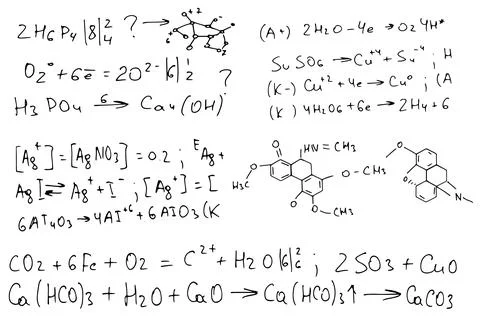 2H6P4 |8|2/4 ?
O2° + 6e = 2O²⁻ |6| 1/2 ?
H3PO4 6→ Ca4(OH)
(A+) 2H2O-4e → O2 4H⁺
SuSO6 → Cu⁺⁴ + Su⁻⁴ ; H
(K-) Cu⁺² + 4e → Cu° ; (A
(K ) 4H2O6 + 6e → 2H4 + 6
[Ag⁺] = [AgNO3] = 0.2 ; ᴱAg+
AgI ⇌ Ag⁺ + I⁻ ; [Ag⁺] = [
6AI4O3 → 4AI⁺⁶ + 6AIO3 (K
O
HN=CH3
H3C O
O-CH3
O
O-CH3
O
O
O
N
CO2 + 6Fe + O2 = C²⁺ + H2O |6|2/6 ; 2SO3 + CuO
Ca(HCO)3 + H2O + CaO → Ca(HCO)3↑ → CaCO3